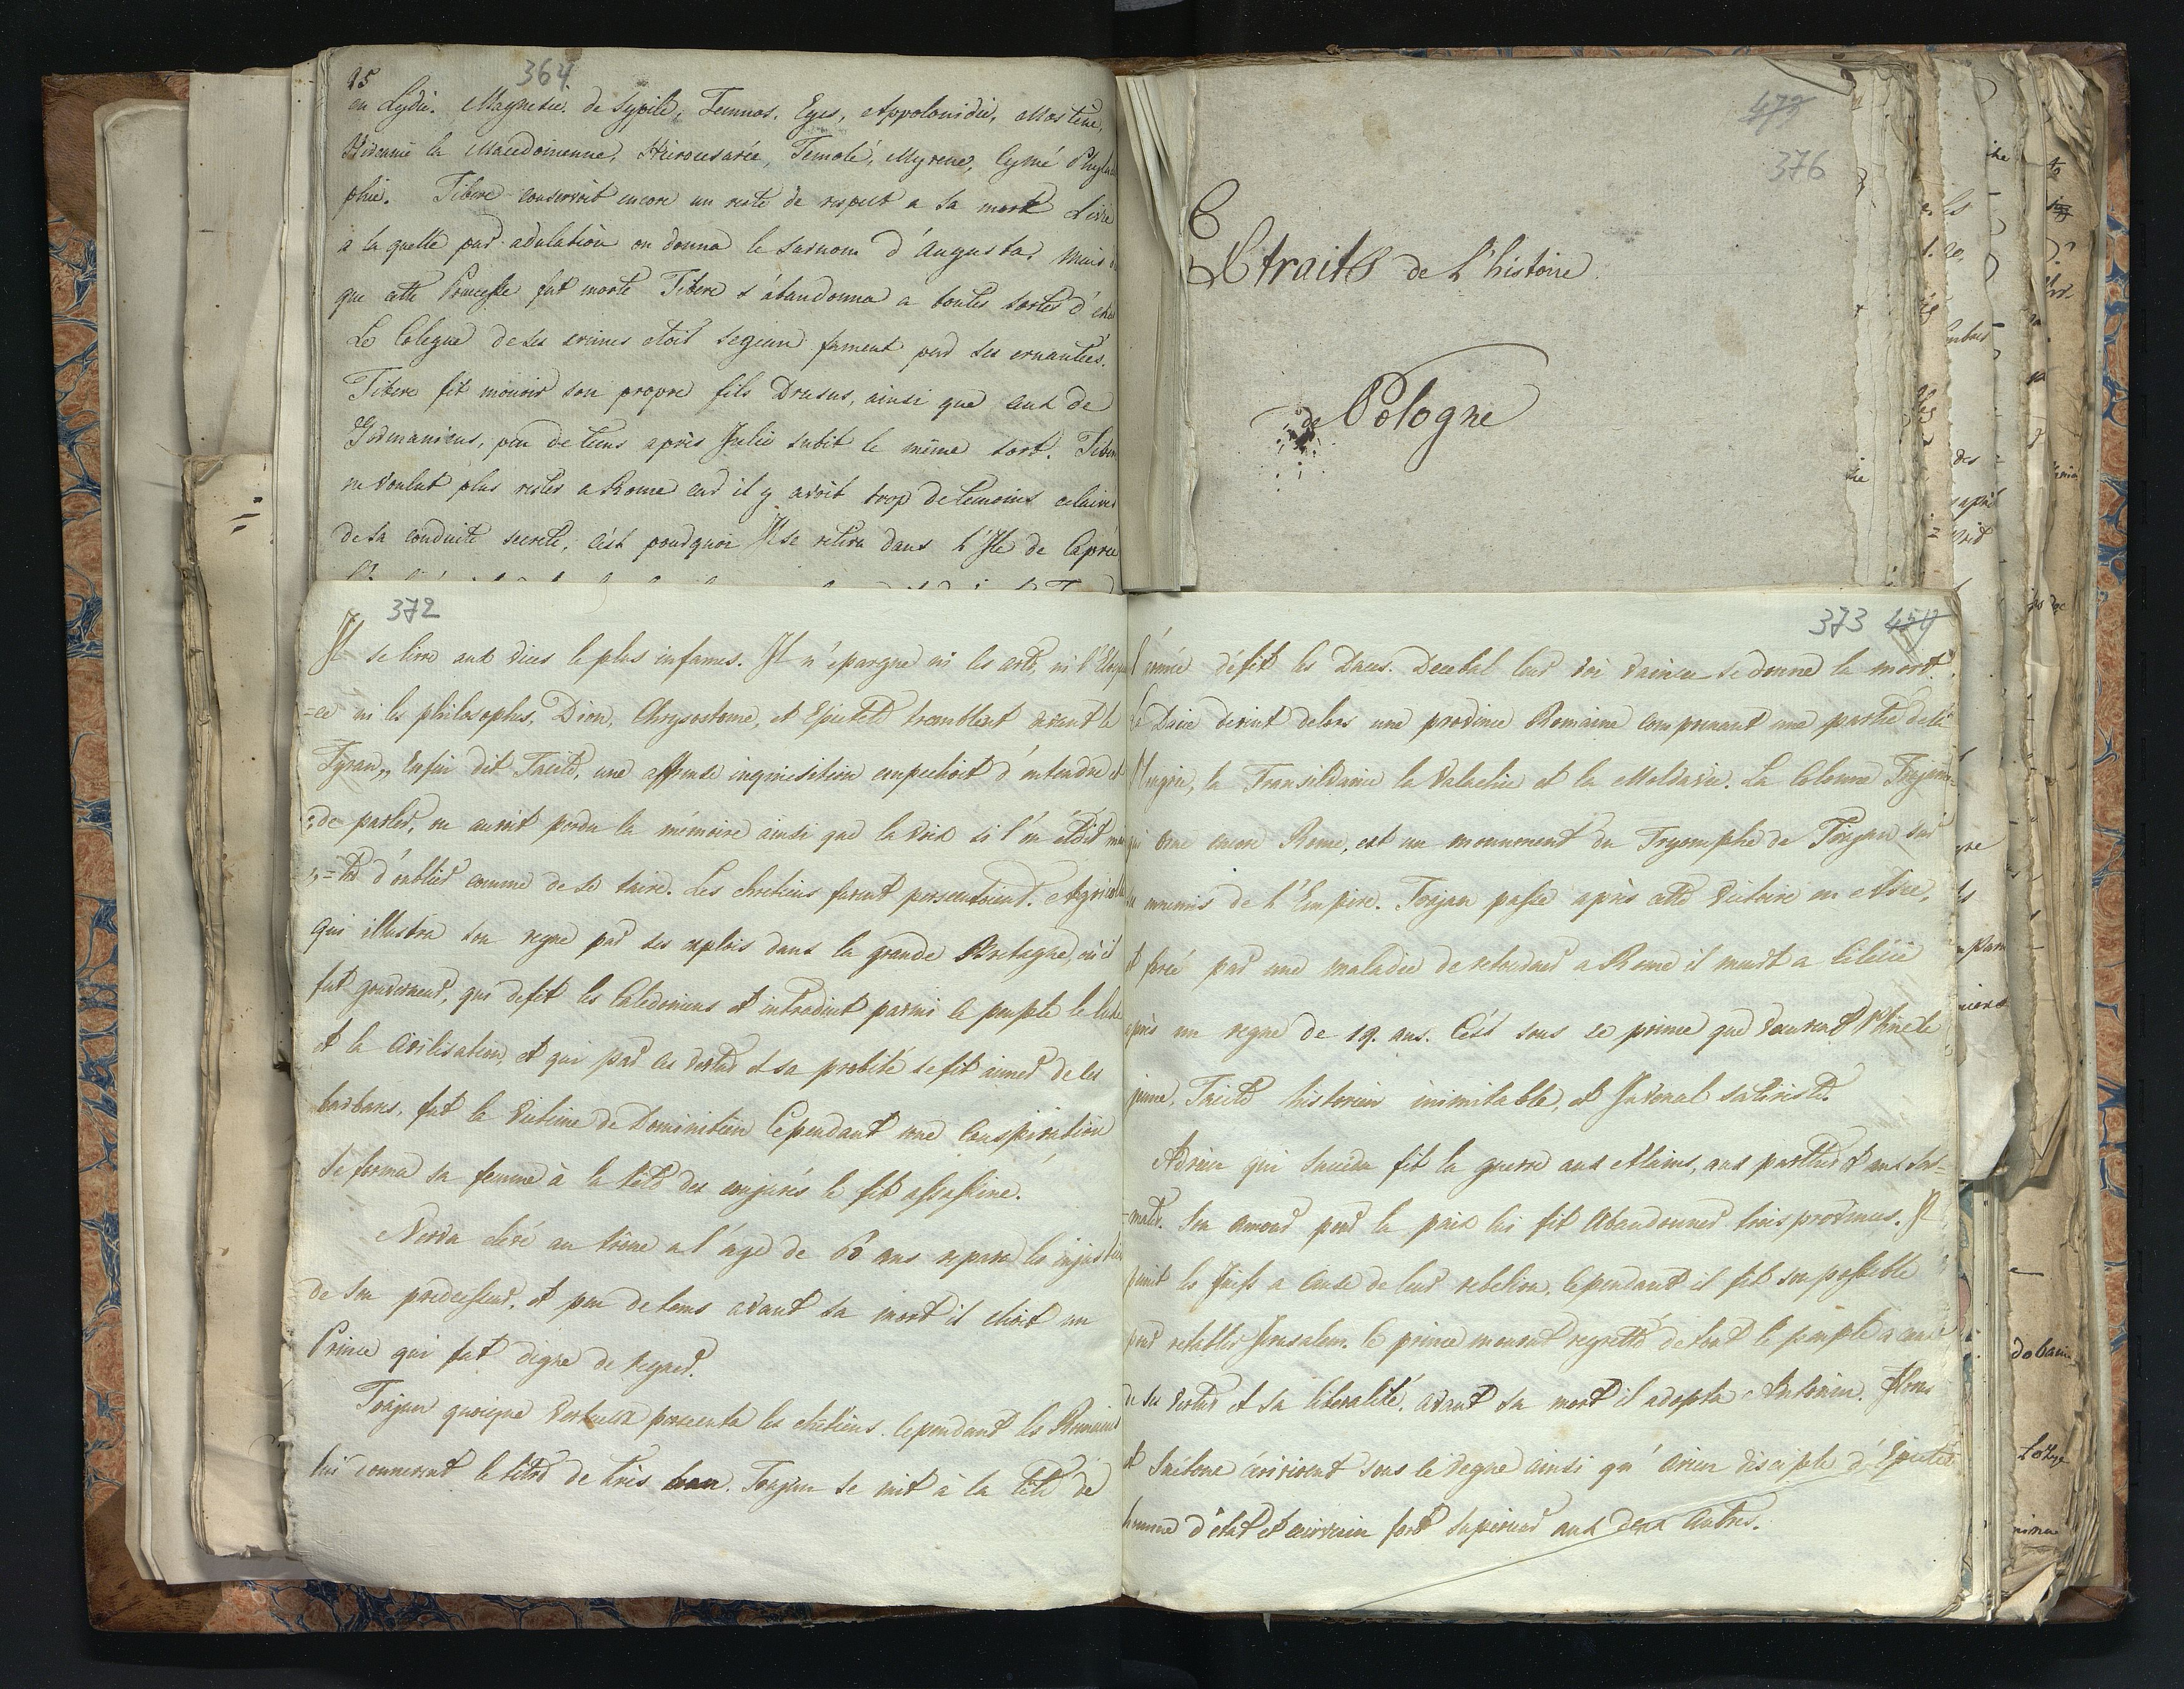 95
364
en Lydie. Magnesie de Sypile, Temnos, Eges, Appolonidie, Mostene,
la Macedoinenne, Hierocesarée, Temole, Myrene, Cymé
phie. Tibere conservoit encore un reste de respect a sa mere Livie
a la quelle par adulation on donna le surnom d'Augusta, mais
que cette Princesse fut morte Tibere s'abandonna a toutes sortes d'
Le Colegue de ses crimes etoit segeun fament par ses cruautées.
Tibere fit mourir son propre fils Drusus, ainsi que ceux de
Germanicus, peu de tems après Julie subit le même sort. Tibere
ne voulut plus rester a Rome car il y avoit trop de temoins
de sa conduite secrete, c'est pourquoi Il se retira dans l'Ile de Caprée
477
376
Extraits de l'histoire
de Pologne
372
Il se livre aux vices le plus infames. Il n'epargne ni les arts, ni l'Eloquen
=ce ni les philosophes, Dion, Chrysostome, et Epictete tremblent devant le
Tyran,, Enfin dit Tacite, une affreuse inquisition empechoit d'entendre et
,,de parler, on auroit perdu la mémoire ainsi que la voix si l'on étoit mai
,,=tre d'oublier comme de se taire. Les chretiens furent persecutoient. Agricola
qui illustra son regne par ses exploits dans la grande Bretagne, où il
fut gouverneur, qui defit les Caledoniens et introduit parmi le peuple le luxe
et la Civilisation, et qui par ses vertus et sa probité se fit aimer de les
barbares, fut la victime de Dominitien Cependant une Conspiration
se forma sa femme à la tete des conjurés le fit assassiné.
Nerva elevé au trone a l'age de 60 ans repara les injustices
de son predecesseur, et peu de tems avant sa mort il choit un
Prince qui fut digne de regner.
Trajan quoique vertueux persecuta les chretiens. Cependant les Romains
lui donnerent le titre de tres bon. Trajan se mit à la tete de
373
l'armée défit les Daces. Decebal leur roi vaincu se donne la mort.
La Dacie devint delors une province Romaine comprenant une partie de la
l'Ungrie, la Transilvanie la Valachie et la Moldavie. La Colonne Trajane
qui orne encore Rome, est un monnement du Tryomphe de Trajan sur
les ennemis de l'Empire. Trajan passe après cette victoire en Asie,
et forcé par une maladie de retourner a Rome il meurt a Cilicie
après un regne de 19. ans. C'est sous ce prince que vecurent Pline le
jeune, Tacite historien inimitable, et Juvenal satiriste.
Adrien qui succeda fit la guerre aux Alains, aux parthes et aux Sar=
=mates. Son amour pour la paix lui fit Abandonner trois provinces. Il
punit les Juifs a cause de leur rebelion, Cependant il fit son possible
pour retablir Jerusalem. Ce prince mourut regretté de tout le peuple a cause
de ses vertus et sa liberalité. avant sa mort il adopta Antonin. Florus
et Suétone écrivirent sous ce regne ainsi qu'Arien disciple d'Epictete
homme d'état et écrivain fort superieur aux deux autres.